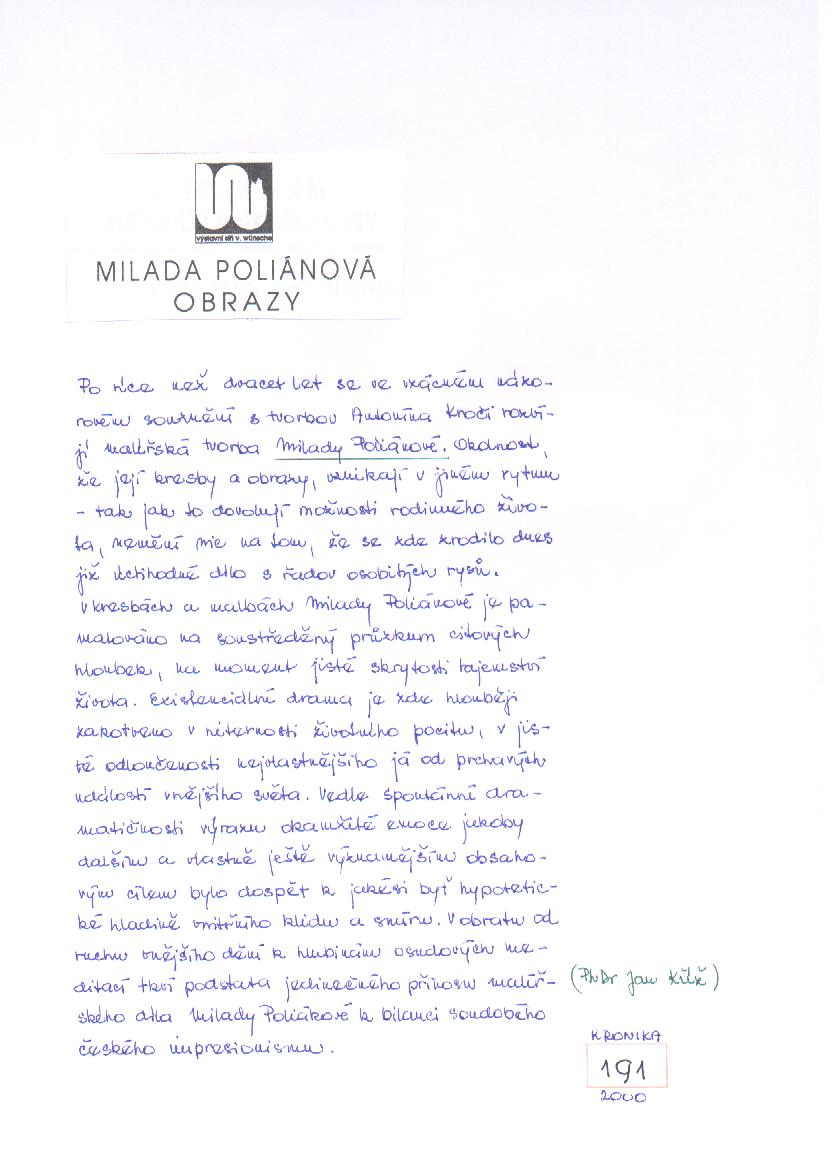 výstavní síň v. wünsche
MILADA POLIÁNOVÁ
OBRAZY
Po více než dvacet let se ve vzácném názo-
rovém souznění s tvorbou Antonína Kročí rozví-
jí malířská tvorba Milady Poliánové. Okolnost,
že její kresby a obrazy, vznikají v jiném rytmu
- tak jak to dovolují možnosti rodinného živo-
ta, nemění nic na tom, že se zde zrodilo dnes
již úctihodné dílo s řadou osobitých rysů.
V kresbách a malbách Milady Poliánové je pa-
matováno na soustředěný průzkum citových
hloubek, na moment jisté skrytosti tajemství
života. Existenciální drama je zde hlouběji
zakotveno v niternosti životního pocitu, v jis-
té odloučenosti nejvlastnějšího já od prchavých
událostí vnějšího světa. Vedle spontánní dra-
matičnosti výrazu okamžité emoce jakoby
dalším a vlastně ještě významějším obsaho-
vým cílem bylo dospět k jakési byť hypotetic-
ké hladině vnitřního klidu a smíru. V obratu od
ruchu vnějšího dění k hlubinám osudových me-
ditací tkví podstata jedinečného přínosu malíř-
ského díla Milady Poliákové k bilanci soudobého
českého impresionismu.
(PhDr Jan Kříž)
KRONIKA
191
2000